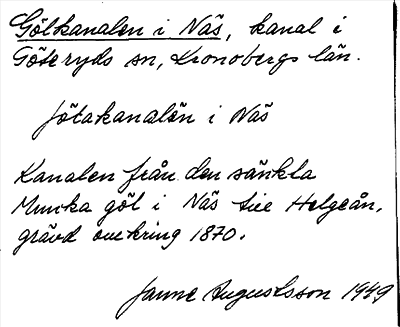 Gölkanalen i Näs, kanal i
Göteryds sn, Kronobergs län.
Jötakanalen i Näs
Kanalen från den sänkta
Munka göl i Näs till Helgeån,
grävd omkring 1870.
Janne Augustsson 1949